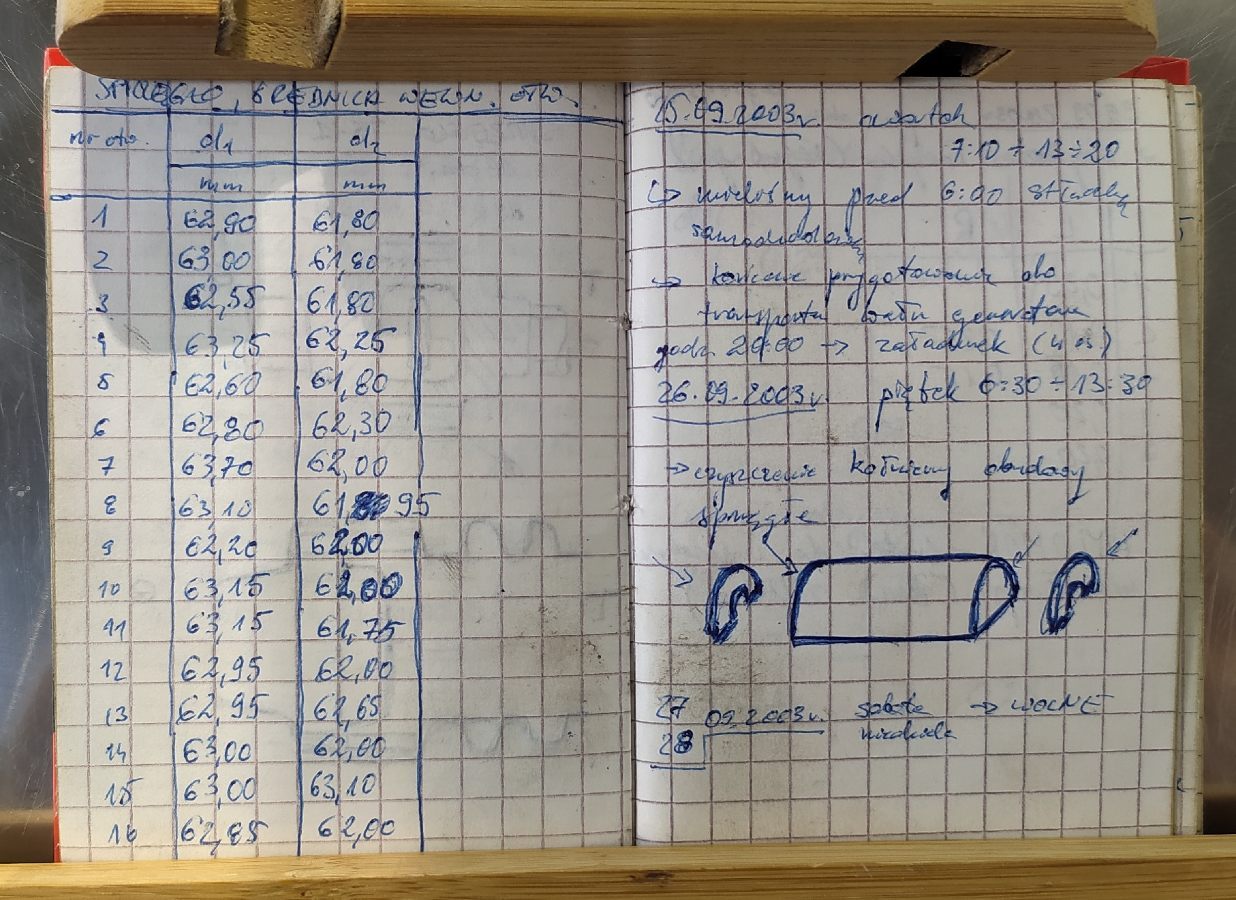 SPRZĘGŁO, ŚREDNICA WEWN. OTW.
nr otw. d1 d2
mm mm
1 62,90 61,80
2 63,00 61,80
3 62,55 61,80
4 63,25 62,25
5 62,60 61,80
6 62,80 62,30
7 63,70 62,00
8 63,10 61,95
9 62,20 62,00
10 63,15 62,00
11 63,15 61,75
12 62,95 62,00
13 62,95 61,65
14 63,00 62,00
15 63,00 63,10
16 62,85 62,00
25.09.2003r. czwartek
7:10 ÷ 13:20
przed 6:00
→ końcowe przygotowanie do
transportu wału generatora
godz. 20:00 → załadunek (4 os)
26.09.2003r. piątek 6:30 ÷ 13:30
→ czyszczenie kołnierzy obudowy
sprzęgła
27 09.2003r. sobota → WOLNE
28 niedziela